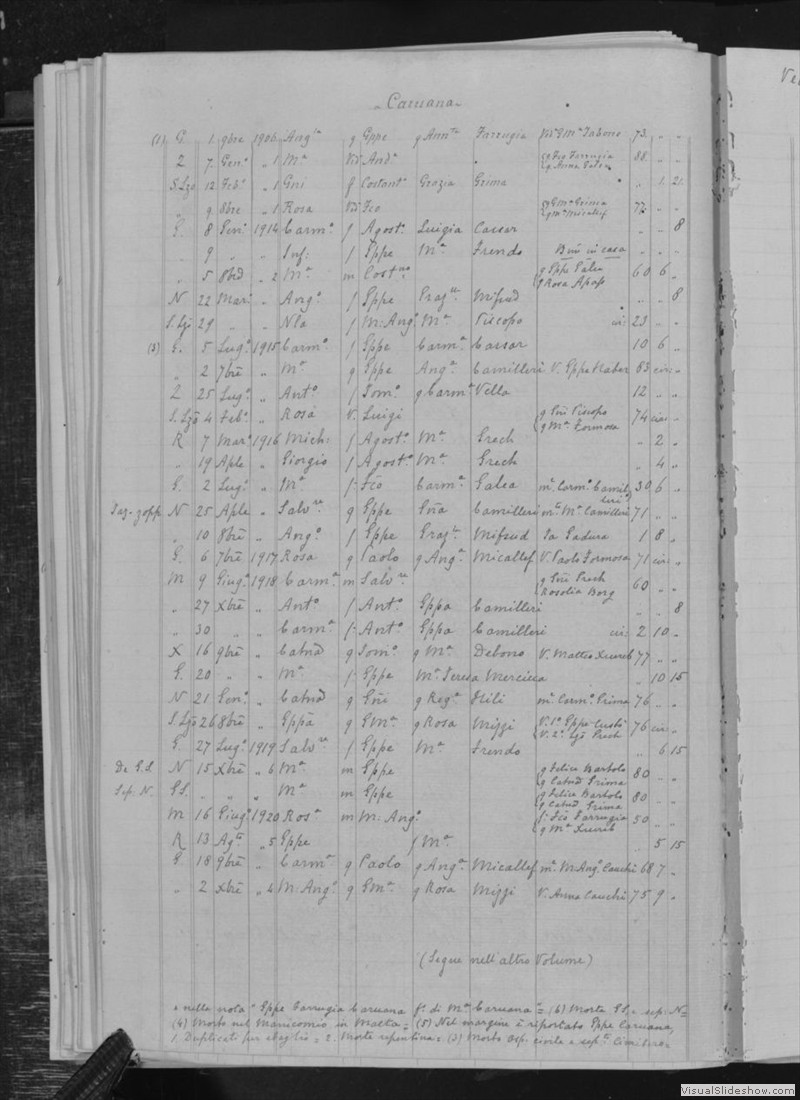 Caruana
(1) G. 1 9bre 1906 Angla g Gppe g Annta Farrugia 73 " "
Z 7 Geno " 1 Ma Vid Anda g Fco Farrugia g Anna Galea 88 " "
S.Lzo 12 Febo " 1 Gni f Costanto Grazia Grima " 1 21
" 9 8bre " 1 Rosa Vid Fco g Gma Grima g Ma Micallef 77 " "
G. 8 Genn 1914 Carmo f Agosto Luigia Cassar " " 8
" 9 " " Inf: f Gppe Ma Frendo Bmi in casa " " "
" 5 8bre " 2 Ma m Costno g Gppe Galea g Rosa Apap 60 6 "
N 22 Mar: " Ango f Gppe Grazta Mifsud " " 8
S.Lzo 29 " " Nla f M: Ango Ma Piscopo cir: 23 " "
(3) G. 5 Lugo 1915 Carmo f Gppe Carma Cassar 10 6 "
" 2 7bre " Ma g Gppe Anga Camilleri V. Gppe Xaber 63 cir: "
Z 25 Lugo " Anto f Domo g Carma Vella 12 " "
S.Lzo 4 Febo " Rosa V. Luigi g Gni Piscopo g Ma Formosa 74 cir: "
R 7 Maro 1916 Mich: f Agosto Ma Grech " 2 "
" 19 Aple " Giorgio f Agosto Ma Grech " 4 "
G. 2 Lugo " Ma f. Fco Carma Galea m. Carmo Camilleri 30 6 "
N 25 Aple " Salvre g Gppe Gna Camilleri m. Ma Camilleri 71 " "
" 10 8bre " Ango f Gppe Grazta Mifsud Ta Gadura " 1 8 "
G. 6 7bre 1917 Rosa g Paolo g Anga Micallef V. Paolo Formosa 71 cir: "
M 9 Giugo 1918 Carma m Salvre g Gni Grech Rosolia Borg 60 " "
" 27 Xbre " Anto f Anto Gppa Camilleri " " 8
" 30 " " Carma f. Anto Gppa Camilleri cir: 2 10 "
X 16 9bre " Catna g Domo g Ma Debono V. Matteo Xuereb 77 " "
G. 20 " " Ma f. Gppe Ma Teresa Mercieca " 10 15
N 21 Geno " Catna g Gni g Rega Hili m. Carmo Grima 76 " "
S.Lzo 26 8bre " Gppa g Gma g Rosa Mizzi V. 1o Gppe Custo V. 2o Lzo Grech 76 cir: "
G. 27 Lugo 1919 Salvre f Gppe Ma Frendo " 6 15
De G.S. N 15 Xbre " 6 Ma m Gppe g Felice Bartolo g Catna Grima 80 " "
Sep. N. GS. " " " Ma m Gppe g Felice Bartolo g Catna Grima 80 " "
M 16 Giugo 1920 Rosa m M: Ango f. Fco Farrugia g Ma Xuereb 50 " "
R 13 Agto " 5 Gppe f Ma " 5 15
G 18 9bre " Carma g Paolo g Anga Micallef m. M. Ango Cauchi 68 7 "
" 2 Xbre " 4 M: Ango g Gma g Rosa Mizzi V. Anna Cauchi 75 9 "
(Segue nell'altro Volume)
nella nota Gppe Farrugia Caruana fo di Ma Caruana = (6) Morta G.S. e sep. N =
(4) Morto nel Manicomio in Malta = (5) Nel margine è riportato Gppe Caruana,
1. Duplicati per sbaglio = 2. Morte repentina = (3) Morto Osp. civile e septo Cimitero =
VisualSlideshow.com